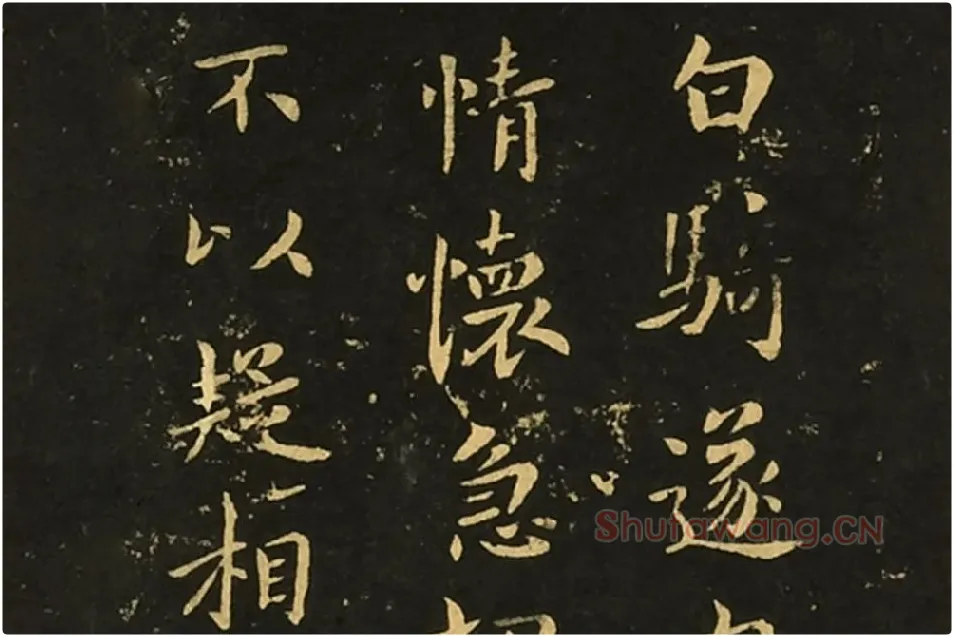 白騎遂
情懷急
不以疑相
Shufawang.CN